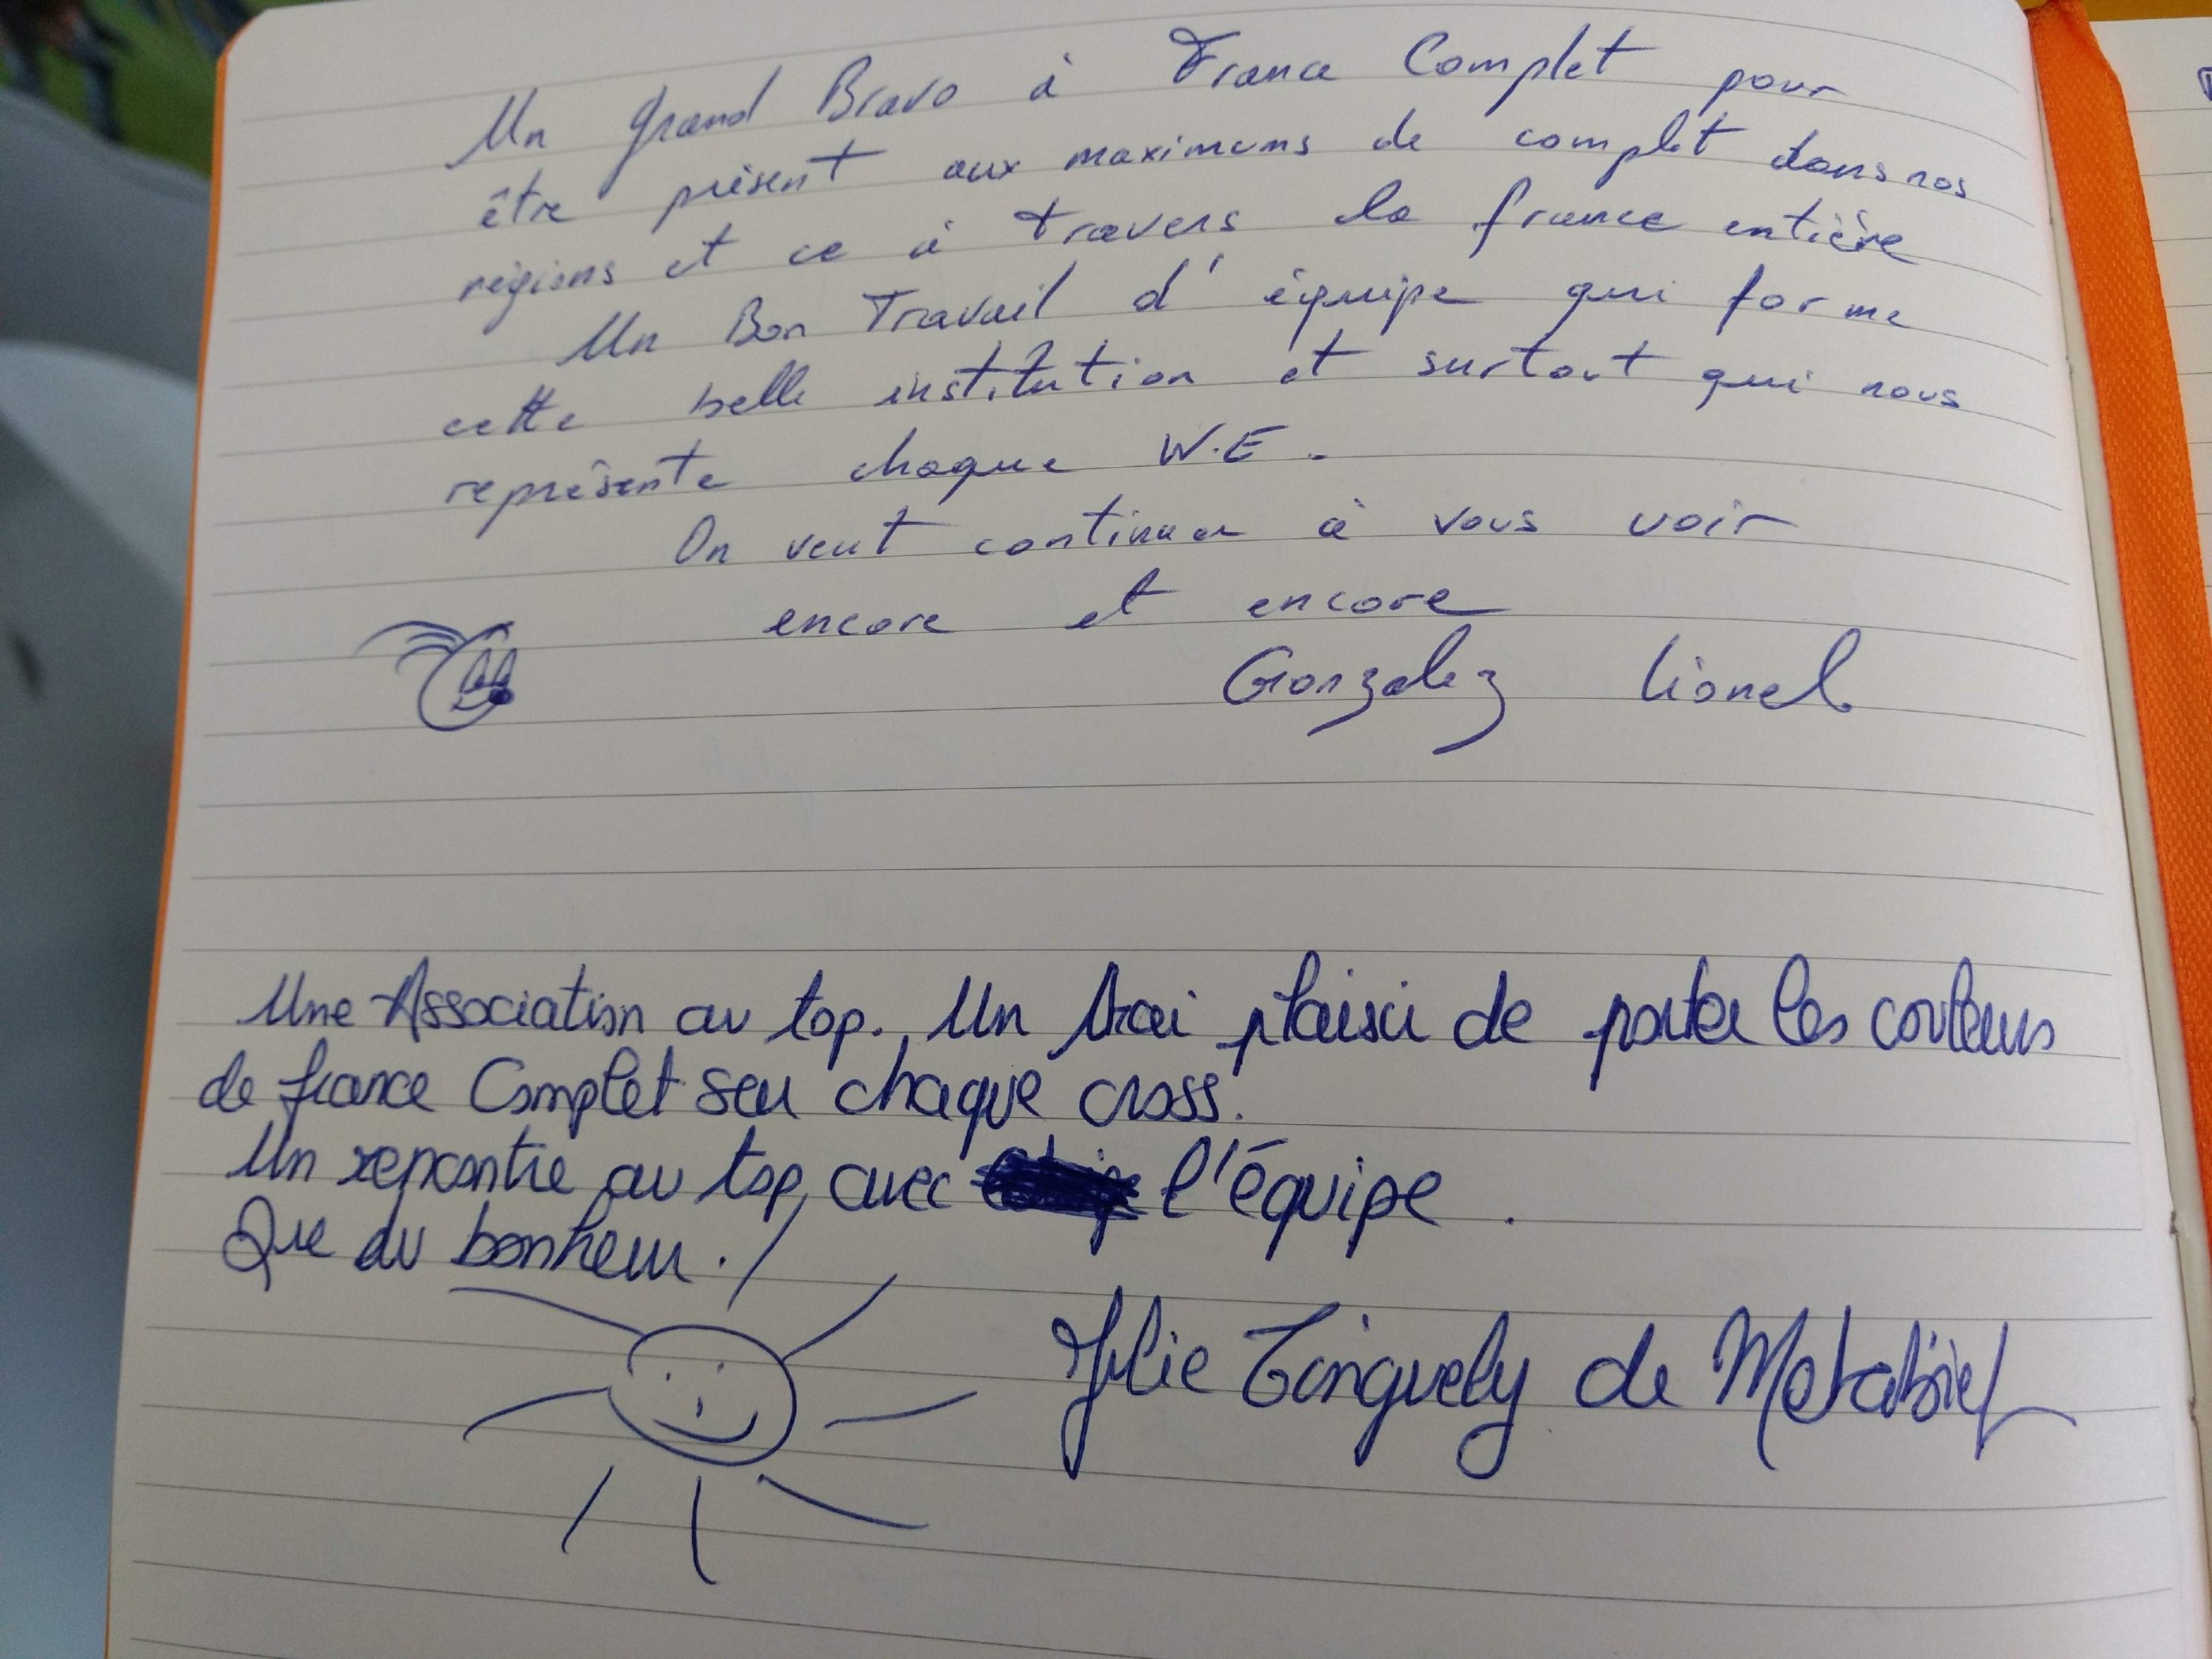 Un grand Bravo à France Complet pour
être présent aux maximums de complet dans nos
régions et ce à travers la france entière
Un Bon Travail d'équipe qui forme
cette belle institution et surtout qui nous
représente chaque W.E.
On veut continuer à vous voir
encore et encore
Gonzalez Lionel
Une Association au top. Un vrai plaisir de porter les couleurs
de france Complet seu chaque cross.
Un rencontre au top avec l'équipe.
Que du bonheur!
Julie Tinguely de Metabief